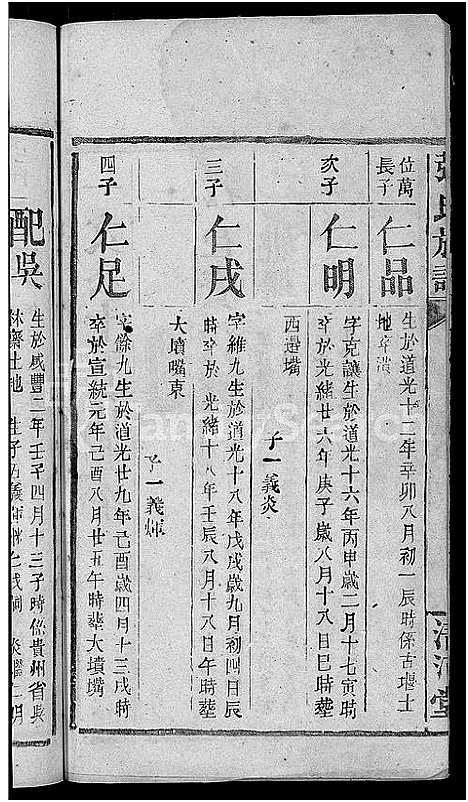 張氏族譜
清河堂
位萬
長子 仁品 生於道光十二年辛卯八月初一辰時係古堰土
地卒
次子 仁明 字克讓生於道光十六年丙申歲二月十七寅時
卒於光緒廿六年庚子歲八月十八日巳時塟
西邊嘴
子一義炎
三子 仁戌 字維九生於道光十八年戊戌歲九月初四日辰
時卒於光緒十八年壬辰八月十八日午時塟
大墳嘴東
子一義輝
四子 仁足 字餘九生於道光廿九年己酉歲四月十三戌時
卒於宣統元年己酉八月廿五午時塟大墳嘴
配吳 生於咸豐二年壬子四月十三子時係貴州省吳